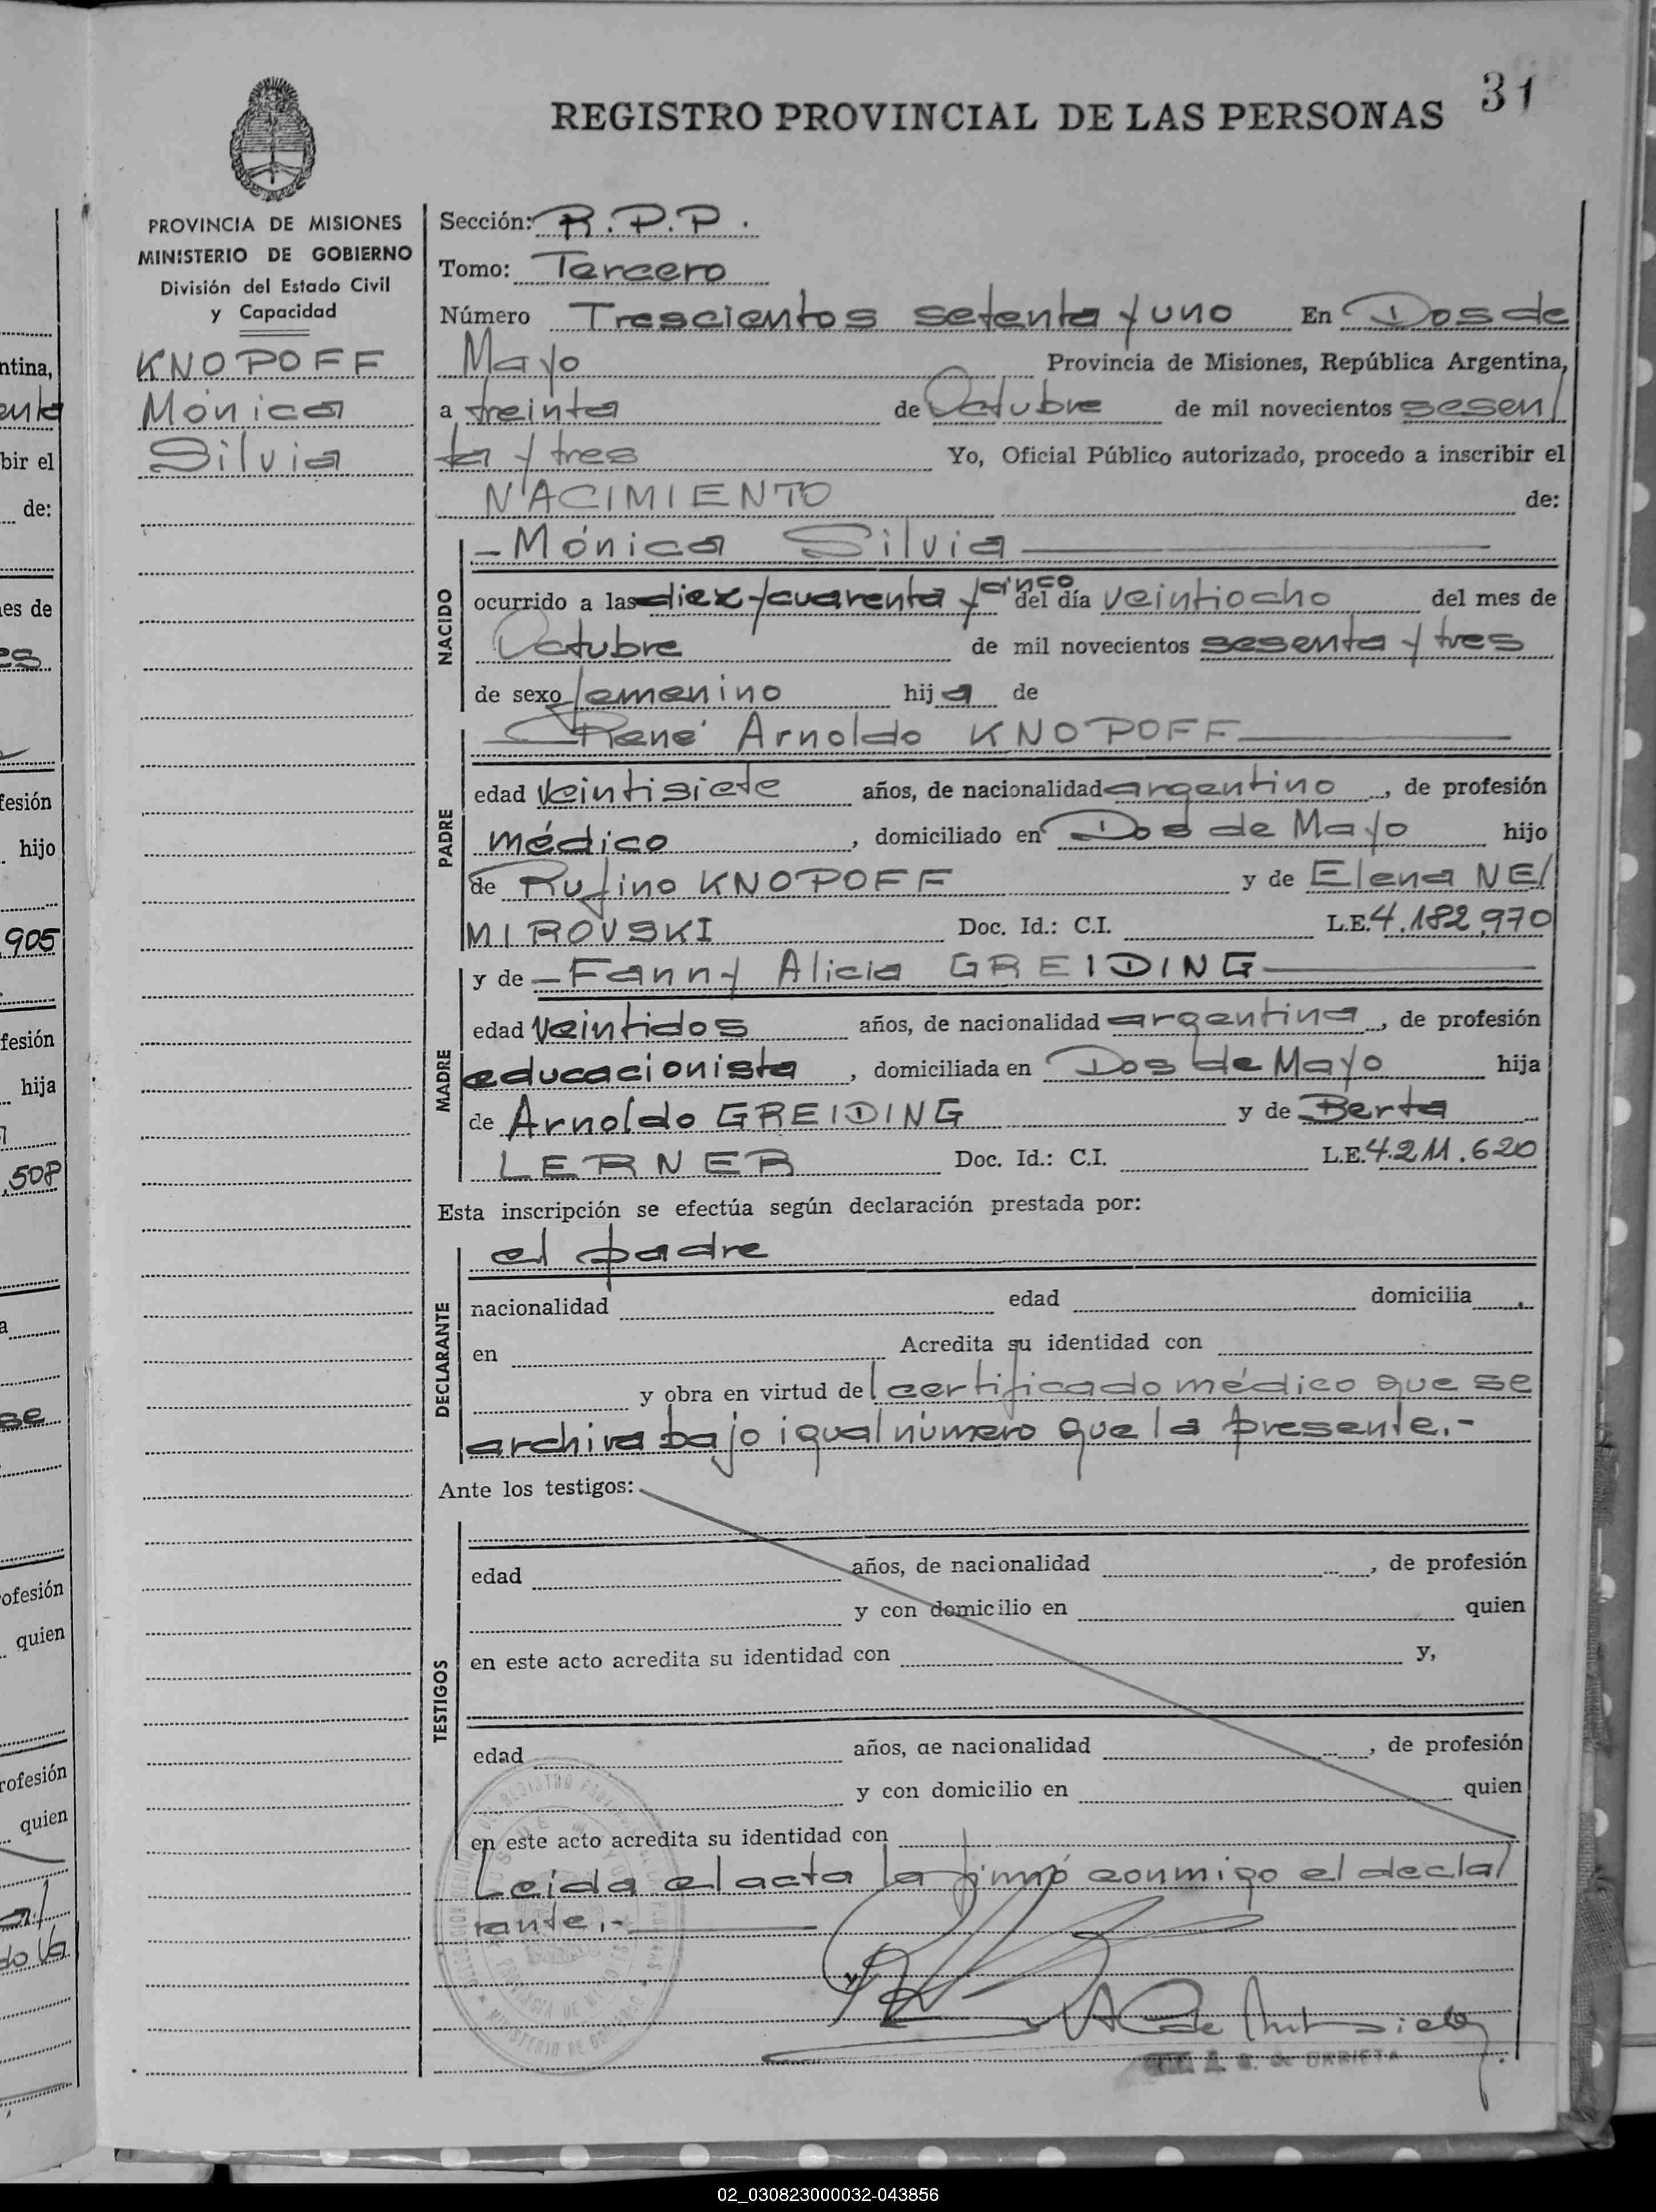 31
REGISTRO PROVINCIAL DE LAS PERSONAS
PROVINCIA DE MISIONES
MINISTERIO DE GOBIERNO
División del Estado Civil
y Capacidad
KNOPOFF
Mónica
Silvia
Sección: R.P.P.
Tomo: Tercero
Número Trescientos setenta y uno En Dos de
Mayo Provincia de Misiones, República Argentina,
a treinta de Octubre de mil novecientos sesen/
ta y tres Yo, Oficial Público autorizado, procedo a inscribir el
NACIMIENTO de:
NACIDO
- Mónica Silvia
ocurrido a las diez y cuarenta y cinco del día veintiocho del mes de
Octubre de mil novecientos sesenta y tres
de sexo femenino hija de
PADRE
René Arnoldo KNOPOFF
edad veintisiete años, de nacionalidad argentino, de profesión
médico, domiciliado en Dos de Mayo hijo
de Rufino KNOPOFF y de Elena NE/
MIROVSKI Doc. Id.: C.I. L.E. 4.182,970
MADRE
y de - Fanny Alicia GREIDING
edad veintidos años, de nacionalidad argentina, de profesión
educacionista, domiciliada en Dos de Mayo hija
de Arnoldo GREIDING y de Berta
LERNER Doc. Id.: C.I. L.E. 4.211.620
Esta inscripción se efectúa según declaración prestada por:
DECLARANTE
el padre
nacionalidad edad domicilia
en Acredita su identidad con
y obra en virtud del certificado médico que se
archiva bajo igual número que la presente.-
Ante los testigos:
TESTIGOS
edad años, de nacionalidad, de profesión
y con domicilio en quien
en este acto acredita su identidad con y,
edad años, de nacionalidad, de profesión
y con domicilio en quien
en este acto acredita su identidad con
Leida el acta la firmó conmigo el decla/
rante.-
de URRIETA
ntina,
bir el
de:
es de
fesión
hijo
905
fesión
hija
508
se
ofesión
quien
rofesión
quien
02_030823000032-043856